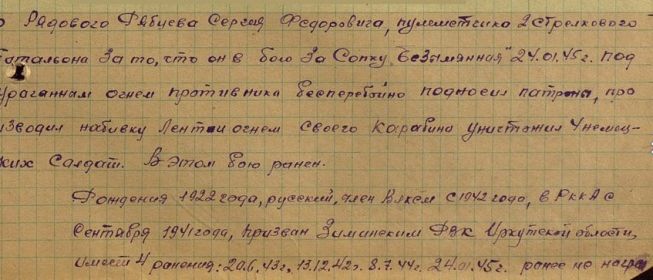 Рядового Фабцева Сергея Федоровича, пулеметчика 2 стрелкового
Батальона За то, что он в бою За Сопку "Безымянная" 24.01.45 г. под
ураганнам огнем противника бесперебойно подносил патроны, про
изводил набивку Лент и огнем своего Карабина уничтожил 4 немец-
ких Салдат. В этом бою ранен.
Рождения 1922 года, русский, член Влксм с 1942 года, в РККА с
Сентября 1941 года, призван Зиминским РВК Иркутской области,
Имеет 4 ранения: 20.6.43 г, 13.12.42 г. 8.7.44 г. 24.01.45 г. ранее не награ